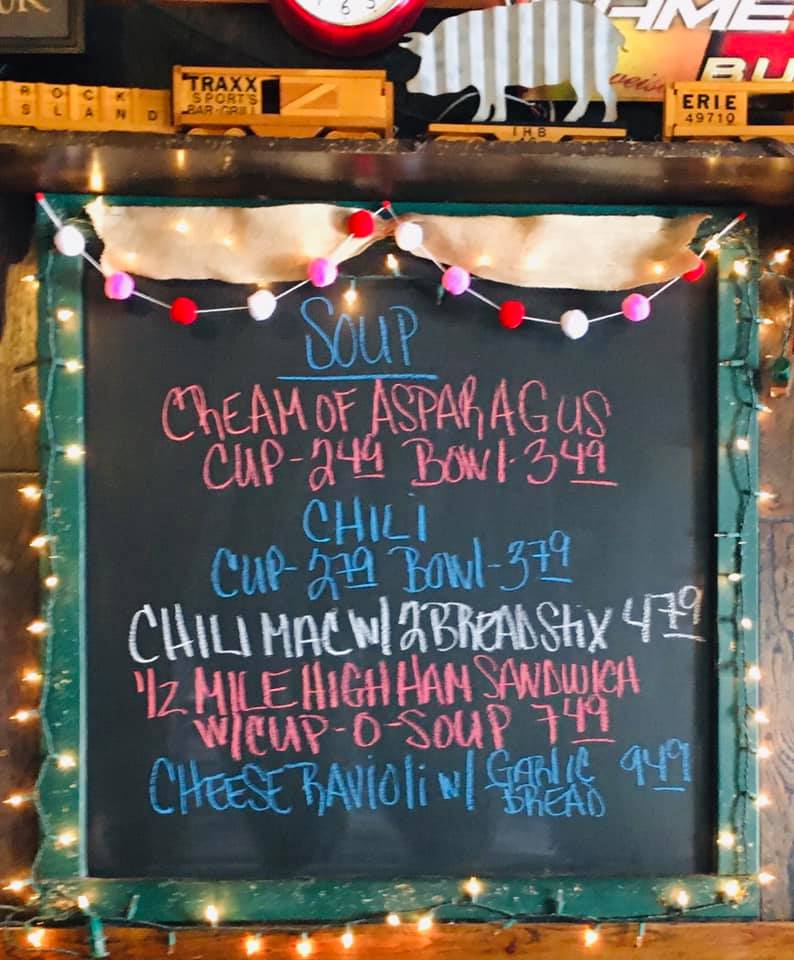 ROCK
ISLAND
TRAXX
SPORTS
BAR-GRILL
IHB
ERIE
49710
BU
SOUP
CREAM OF ASPARAGUS
CUP-249 BOWL-349
CHILI
CUP-279 BOWL-379
CHILI MAC W/ 2 BREADSTIX 479
1/2 MILE HIGH HAM SANDWICH
W/CUP-O-SOUP 749
CHEESE RAVIOLI W/ GARLIC BREAD 949